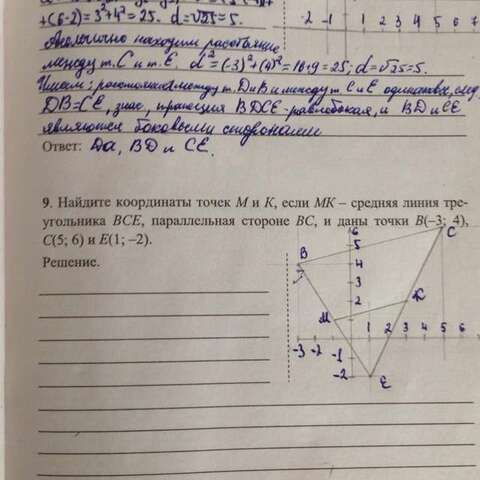 +(6-2)=3²+4²=25. d=√25=5.
Аналогично находим расстояние
между т. С и т. Е. d²=(-3)²+(4)²=16+9=25; d=√25=5.
Имеем: расстояния между т. D и B и между т. С и Е одинаковые, след.
DB=CE, знач, трапеция BDCE - равнобокая, и BD и CE
являются боковыми сторонами
Ответ: Да, BD и CE.
-2 -1 1 2 3 4 5 6 7
9. Найдите координаты точек M и K, если MK – средняя линия тре-
угольника BCE, параллельная стороне BC, и даны точки B(–3; 4),
C(5; 6) и E(1; –2).
Решение.
6
5
4
3
2
B
C
K
M
-3 -2 1 2 3 4 5 6
-1
-2
E